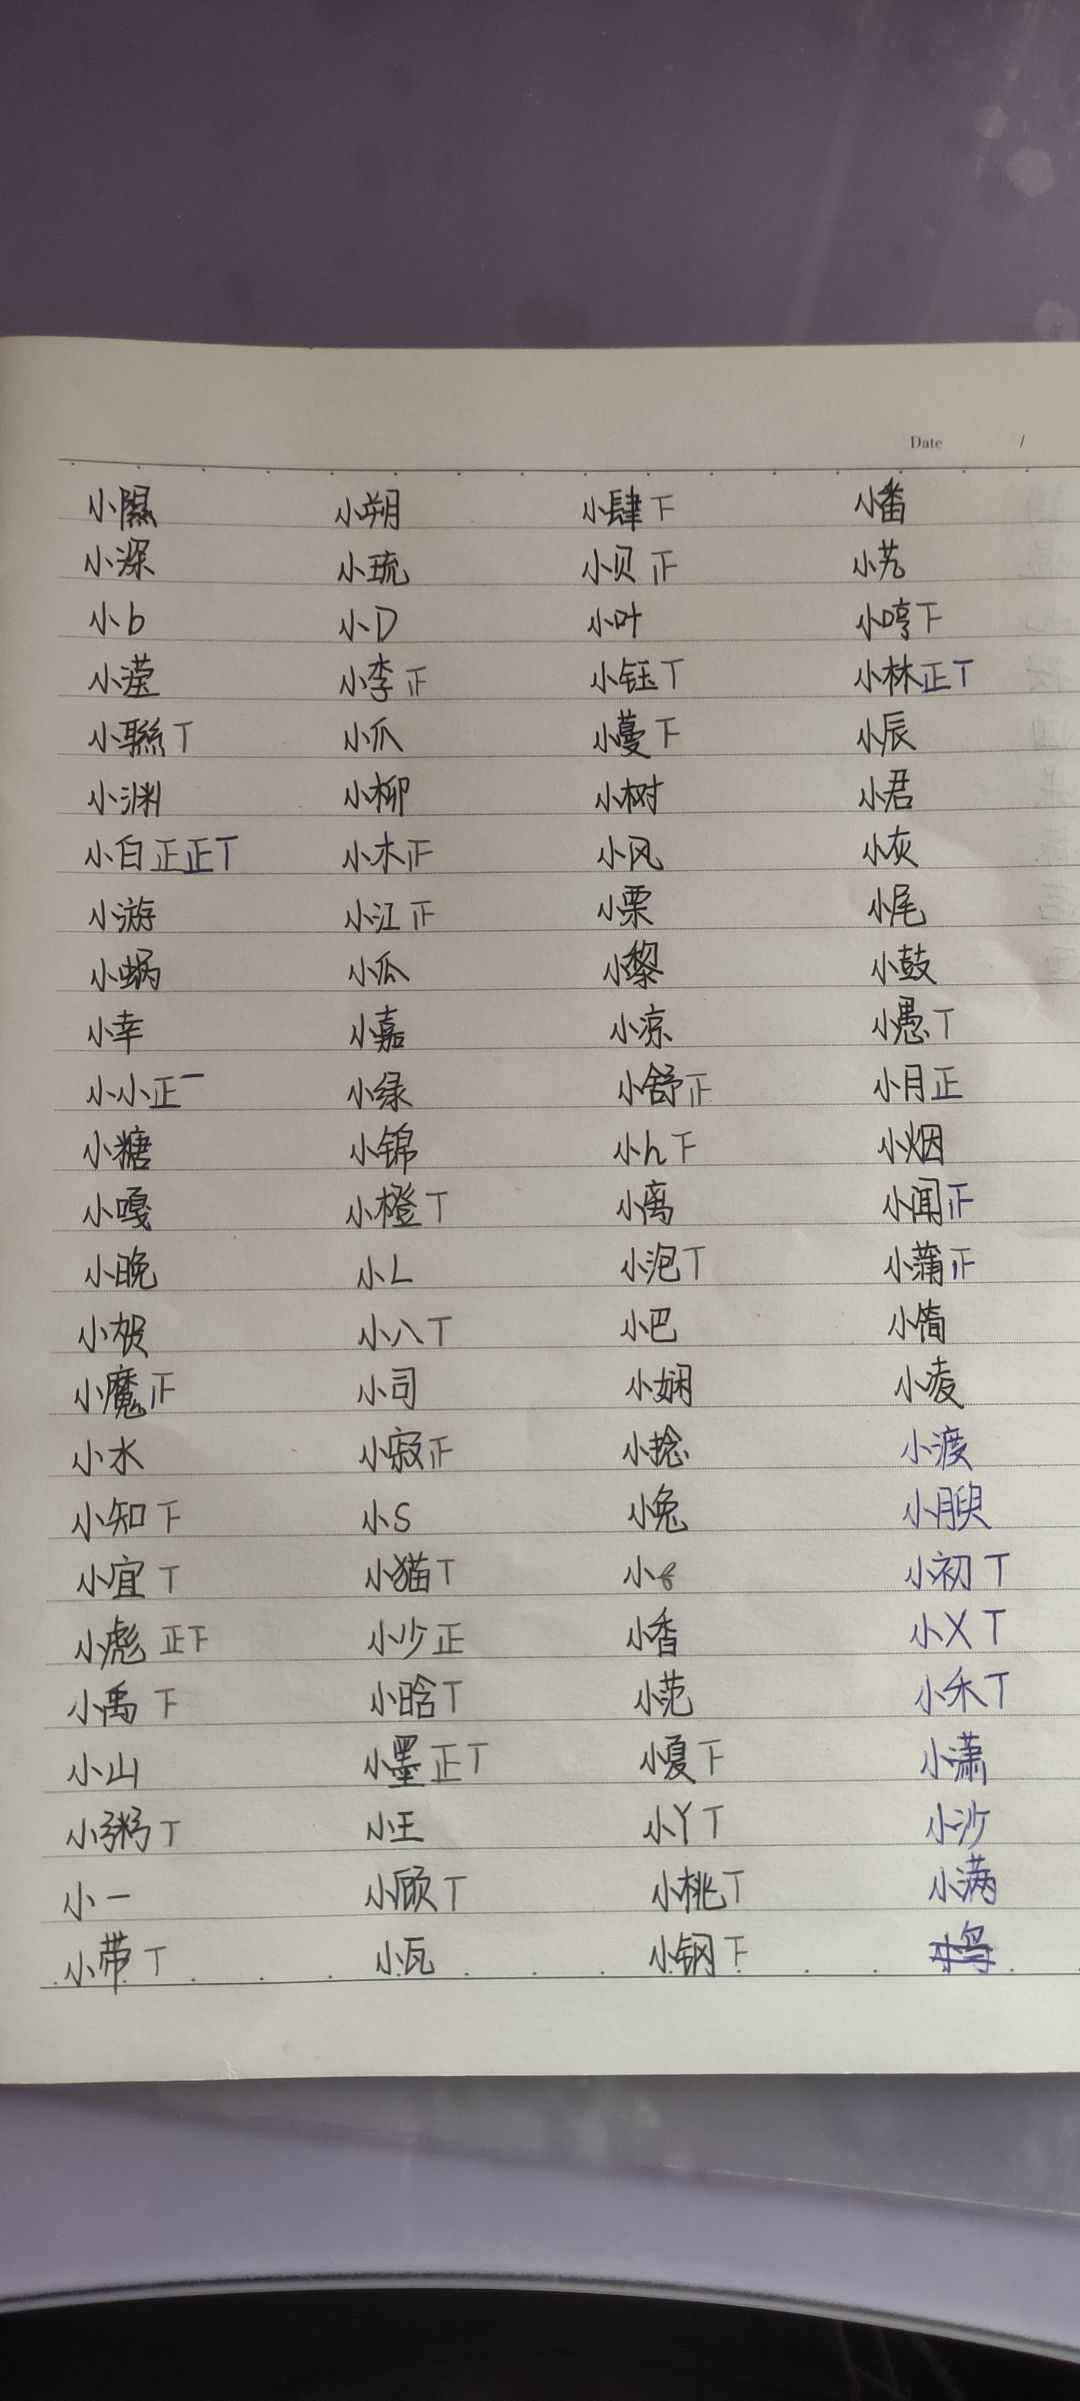 Date /
小隰 小朔 小肆 下 小番
小深 小琉 小贝 正 小艽
小b 小D 小叶 小哼 下
小滢 小李 正 小钰 T 小林 正T
小联 T 小爪 小蔓 下 小辰
小渊 小柳 小树 小君
小白 正正T 小木 正 小风 小灰
小游 小江 正 小栗 小尾
小蜗 小瓜 小黎 小鼓
小幸 小嘉 小凉 小愚 T
小小 正一 小绿 小舒 正 小月 正
小糖 小锦 小h 下 小烟
小嘎 小橙 T 小离 小闻 正
小晚 小L 小泡 T 小蒲 正
小贺 小八 T 小巴 小简
小魔 正 小司 小娴 小凌
小水 小寂 正 小捻 小渡
小知 下 小S 小兔 小腴
小宜 T 小猫 T 小 小初 T
小彪 正下 小少 正 小香 小X T
小禹 下 小晗 T 小范 小禾 T
小山 小墨 正T 小夏 下 小潇
小粥 T 小王 小丫 T 小沙
小一 小顾 T 小桃 T 小满
小带 T 小瓦 小钢 下 小鸟